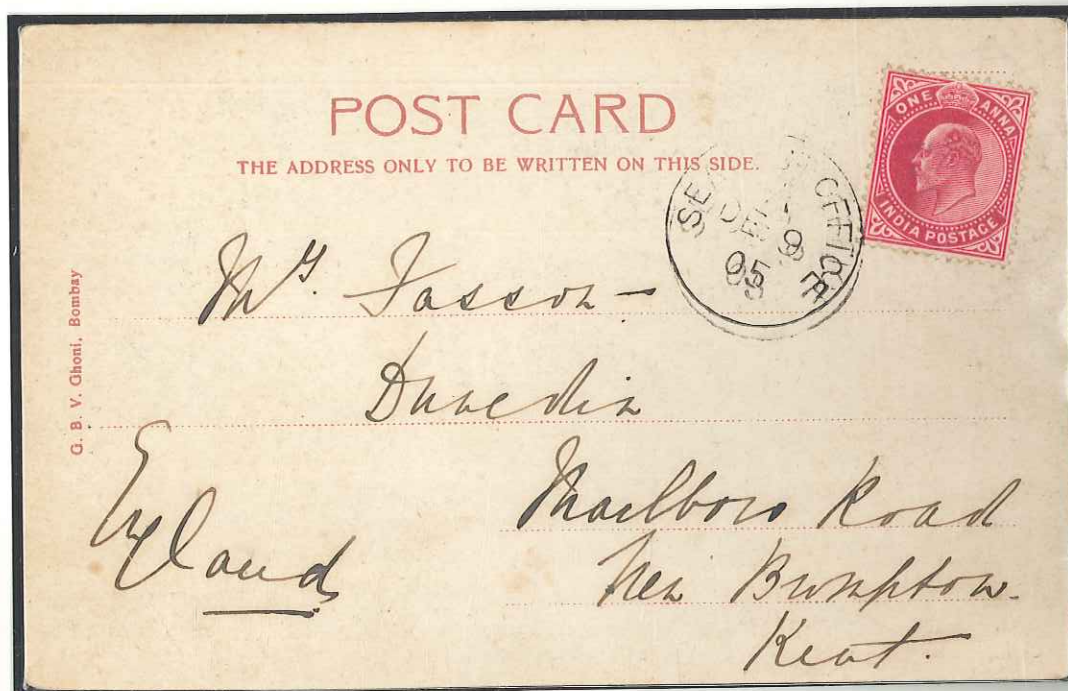 POST CARD
THE ADDRESS ONLY TO BE WRITTEN ON THIS SIDE.
ONE ANNA
INDIA POSTAGE
SEA OFFICE
DE 9
05
G. B. V. Ghoni, Bombay
Mrs. Fasson -
Dunedin
Marlboro Road
New Brompton.
Kent.
England